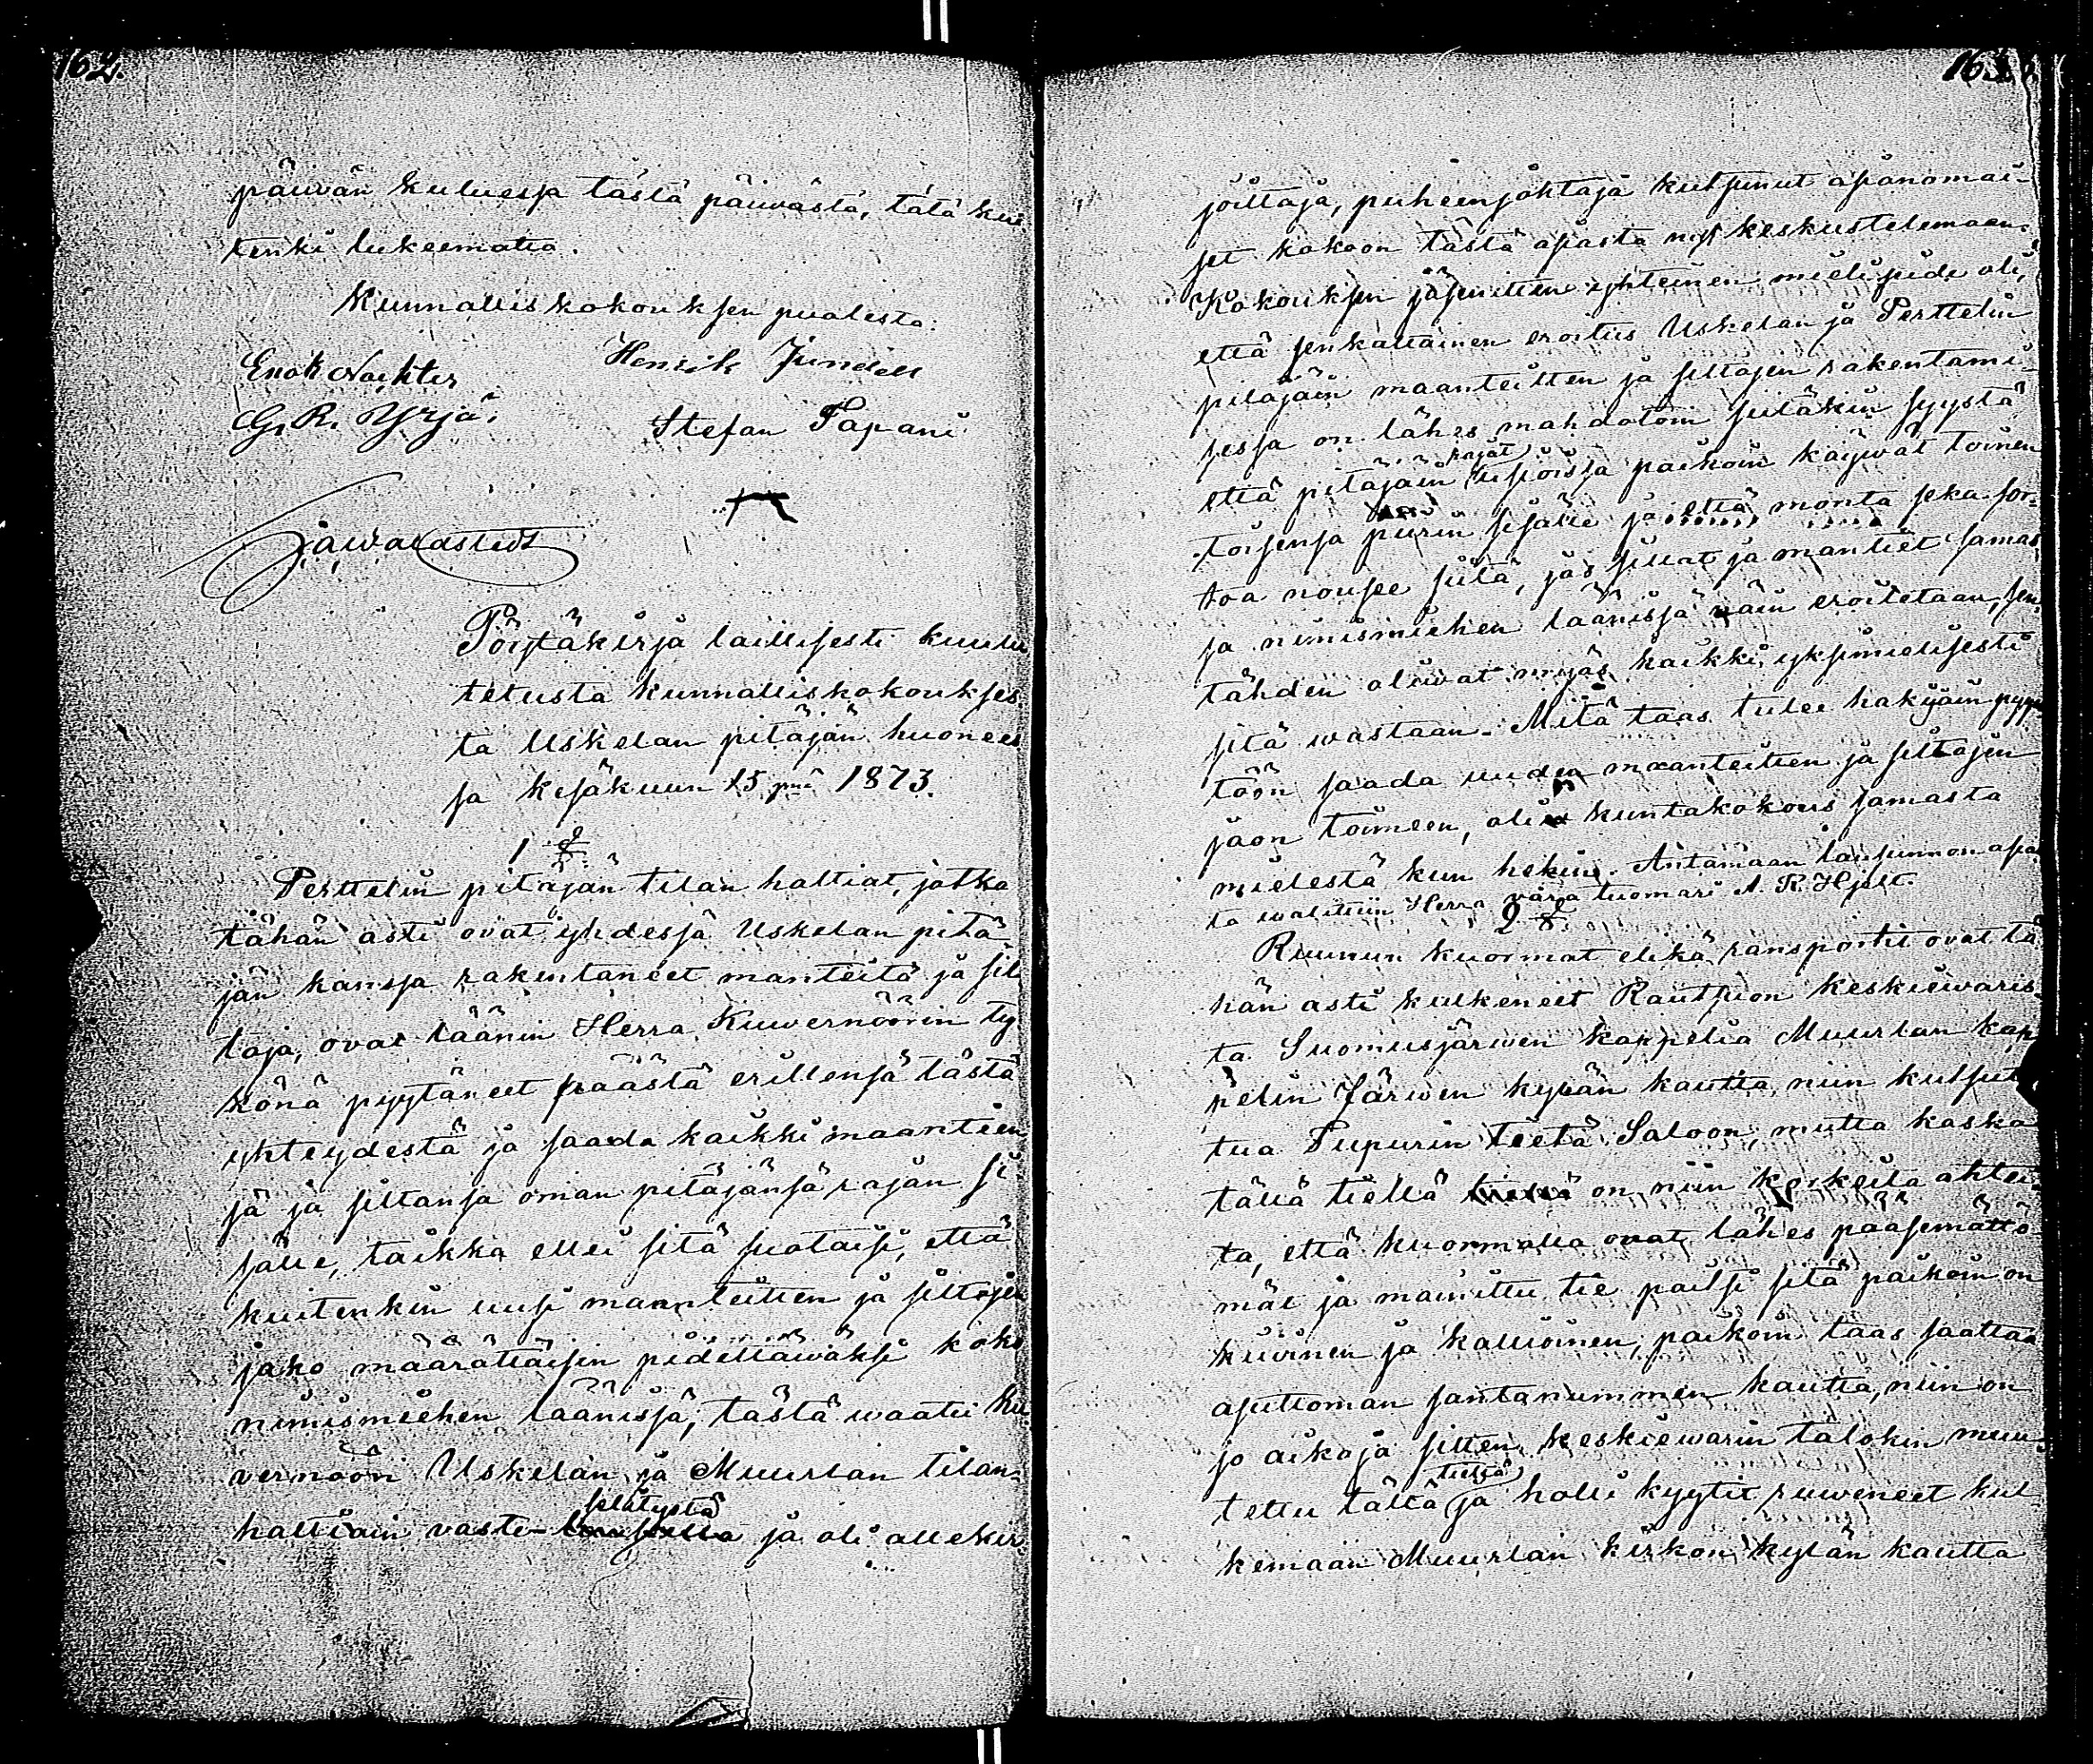 162.
päiwän kuluessa tästä päiwästä, tätä kui-
tenki lukeematta.
Kunnalliskokouksen puolesta:
Enok Nackter Henrik Jundell
G. R. Yrjä. Stefan Tapani
Pöytäkirja laillisesti kuulu
tetusta kunnalliskokoukses
ta Uskelan pitäjän huonees
sa kesäkuun 15 pnä 1873.
1 §
Perttelin pitäjän tilan haltiat, jotka
tähän asti ovat yhdessä Uskelan pitä
jän kanssa rakentaneet manteitä ja sil
toja, ovat läänin Herra Kuwernöörin ty
könä pyytäneet päästä erillensä tästä
yhteydestä ja saada kaikki maantien
sä ja siltansa oman pitäjänsä rajan si
sälle, taikka ellei sitä suotaisi, että
kuitenkin uusi maanteitten ja siltojen
jako määrättäisin pidettäwäksi koko
nimismiehen läänissä, tästä waatii ku
vernööri Uskelan ja Muurlan tilan-
haltiain vasti- selitystä ja oli allekir
163
joittaja, puheenjohtaja kutsunut asianomai-
set kokoon tästä asiasta nyt keskustelemaan.
Kokouksen jäsenitten yhteinen mielipide oli,
että senkaltainen eroitus Uskelan ja Perttelin
pitäjäin maanteitten ja siltojen rakentami-
sessa on lähes mahdotoin siitäkin syystä
että pitäjäin rajat usioissa paikoin käywät toinen
toisensa piirin sisälle ja että monta seka sor-
toa nousee siitä, jos sillat ja mantiet samas
sa nimismiehen läänissä näin eroitetaan, sen
tähden oliwat myös kaikki yksimielisesti
sitä wastaan. Mitä taas tulee hakijain pyyn
töön saada uuden maanteitten ja siltojen
jaon toimeen, oli kuntakokous samasta
mielestä kun hekin. Antamaan lausunnon asia
ta walittiin Herra vara tuomari A. R. Hjelt.
2 §
Ruunun kuormat elikä ransportit ovat tä
hän asti kulkeneet Rautsuon keskiewaris
ta Suomusjärwen kappelia Muurlan kap
pelin Järwen kylän kautta niin kutsut
tua Pupurin tietä Saloon, mutta koska
tällä tiellä on niin korkeita ahtei-
ta, että kuormalla ovat lähes pääsemättö-
mät ja mainittu tie paitsi sitä paikoin on
kiwinen ja kallioinen, paikoin taas saattaa
asuttoman santanummen kautta, niin on
jo aikoja sitten keskiewarin talokin muu-
tettu tältä tieltä ja holli kyytit ruweneet kul-
kemaan Muurlan kirkon kylän kautta